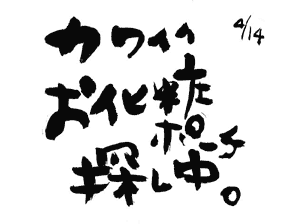 4/14
カワイイ
お化粧
ポーチ
探し中。